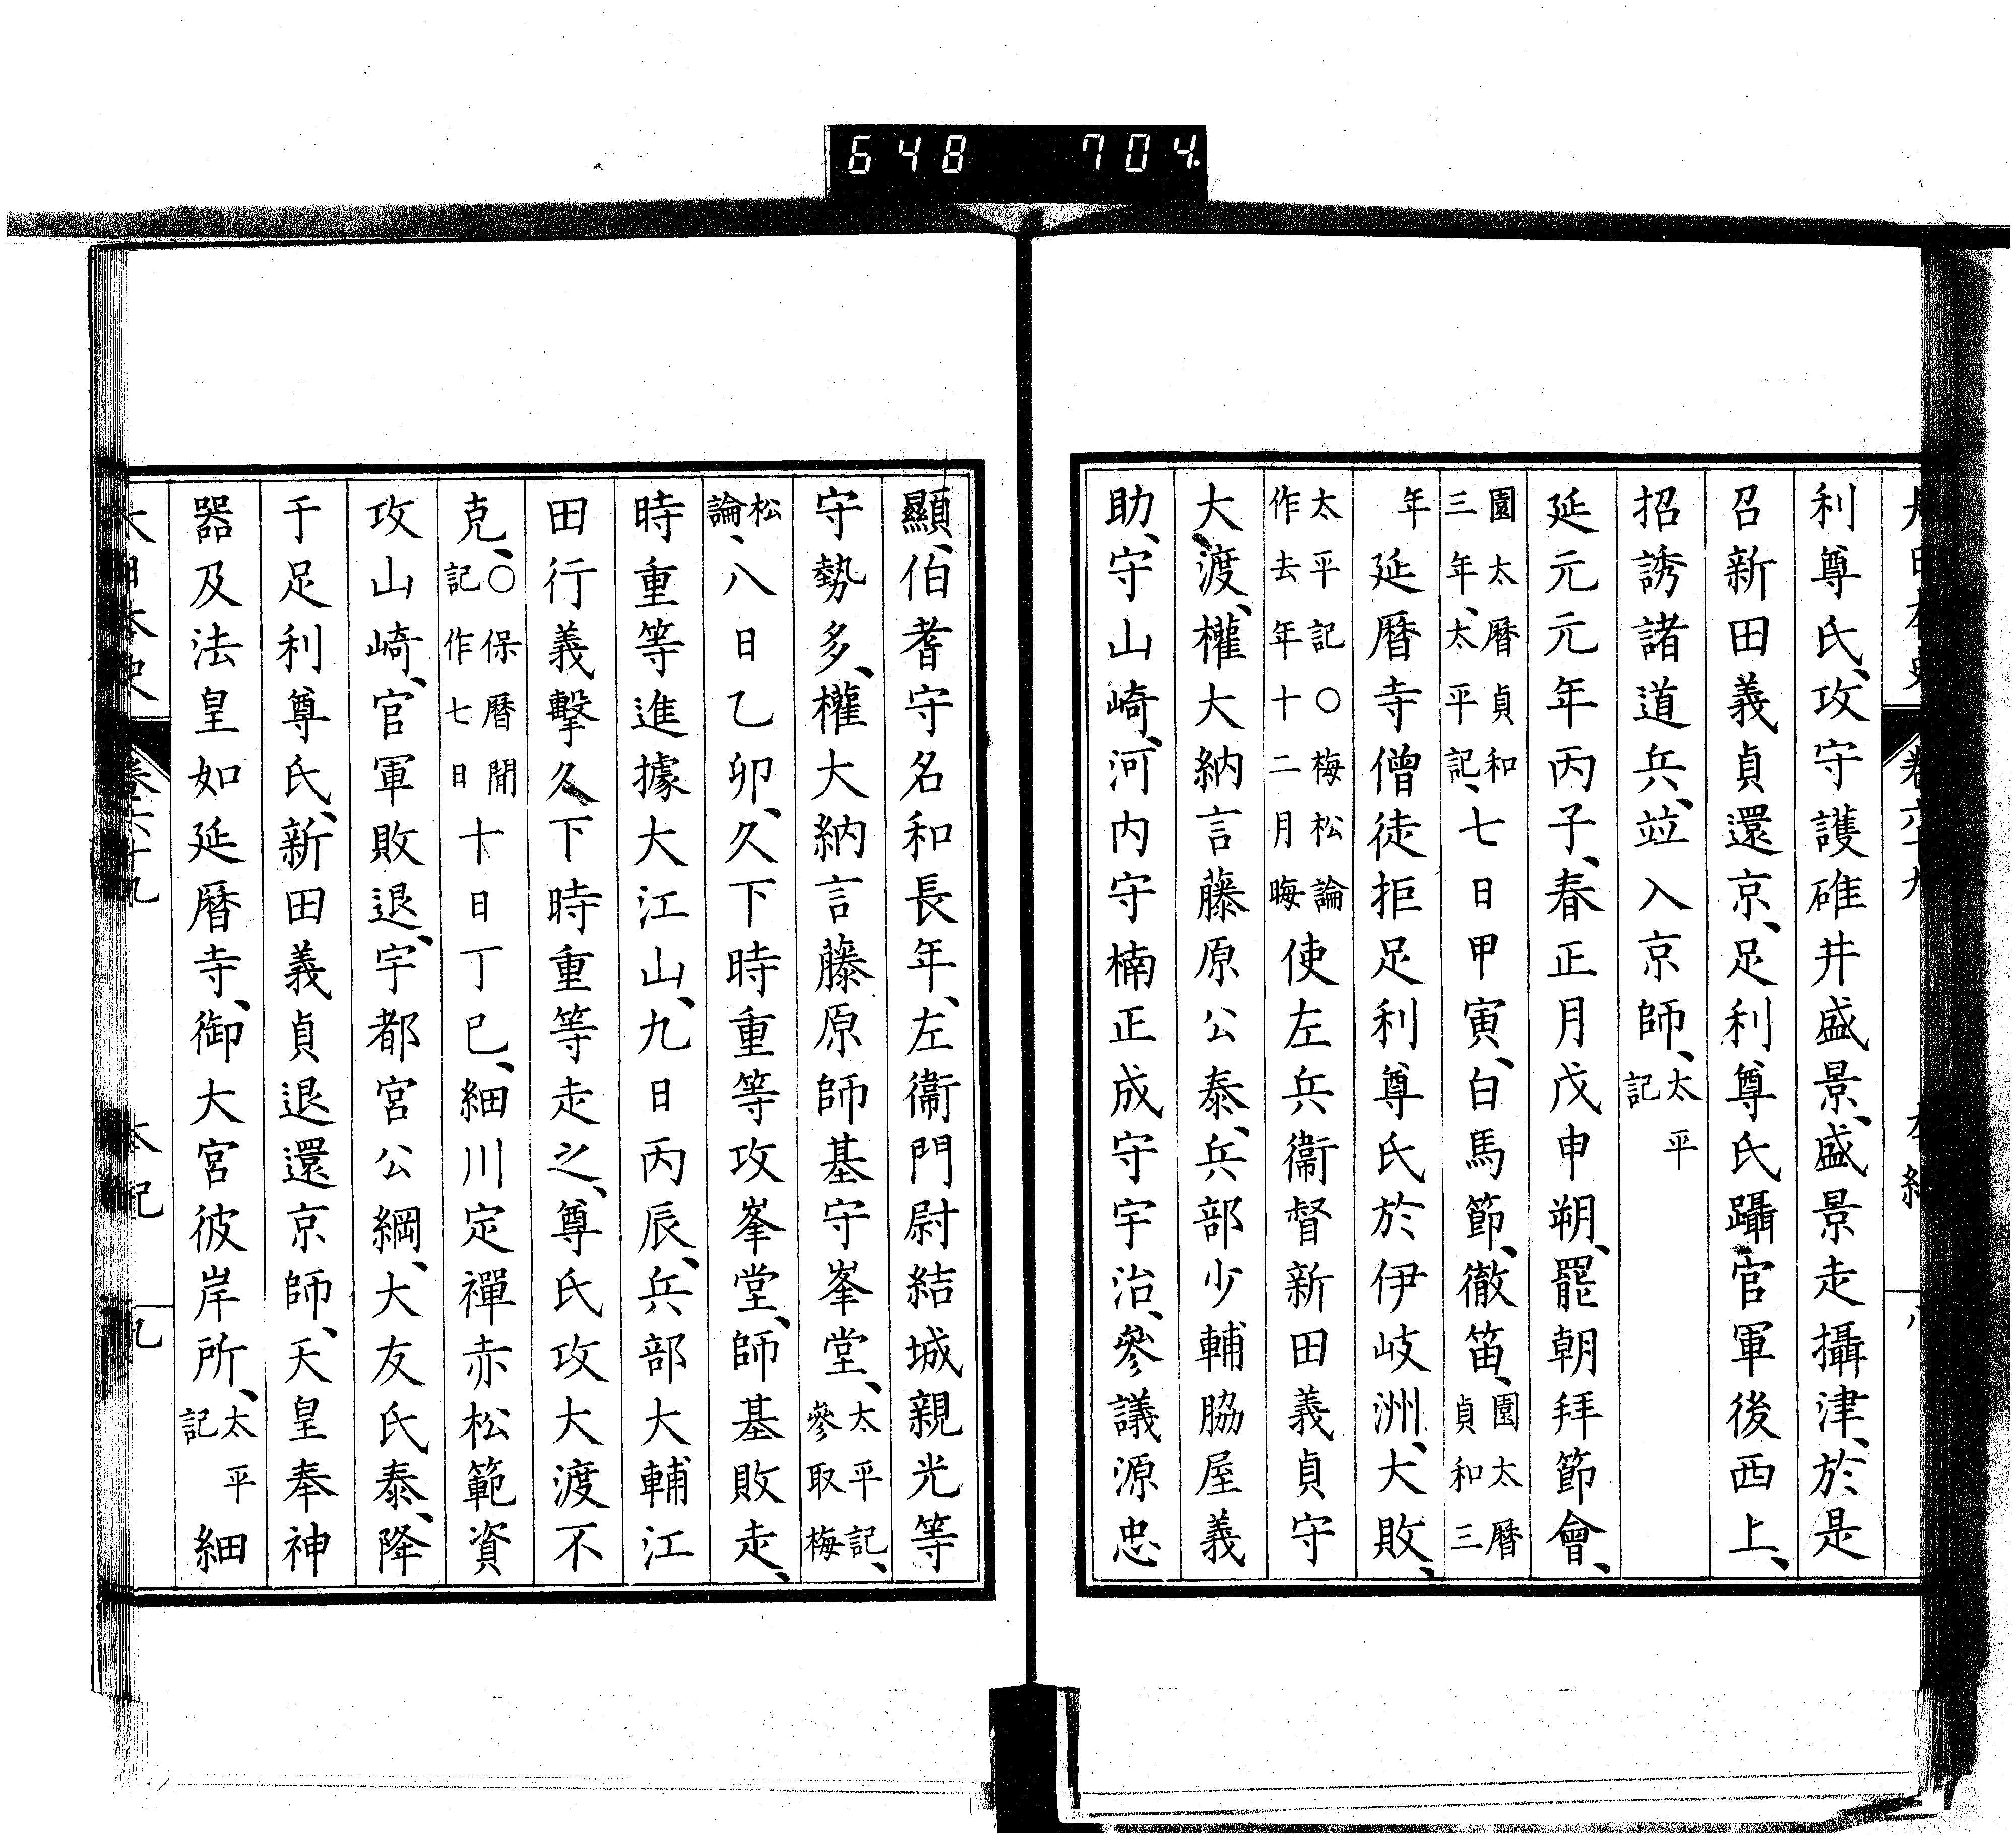 648 704.
利尊氏、攻守護碓井盛景、盛景走攝津、於是
召新田義貞還京、足利尊氏躡官軍後西上、
招誘諸道兵、竝入京師、太平記
延元元年丙子、春正月戊申朔、罷朝拜節會、
園太曆貞和三年、太平記、七日甲寅、白馬節、徹笛、園太曆貞和三
年延曆寺僧徒拒足利尊氏於伊岐洲、大敗、
太平記〇梅松論作去年十二月晦使左兵衞督新田義貞守
大渡、權大納言藤原公泰、兵部少輔脇屋義
助、守山崎、河內守楠正成守宇治、參議源忠
顯、伯耆守名和長年、左衞門尉結城親光等
守勢多、權大納言藤原師基守峯堂、太平記、參取梅
松論、八日乙卯、久下時重等攻峯堂、師基敗走、
時重等進據大江山、九日丙辰、兵部大輔江
田行義擊久下時重等走之、尊氏攻大渡不
克、〇保曆閒記作七日十日丁巳、細川定禪赤松範資
攻山崎、官軍敗退、宇都宮公綱、大友氏泰、降
于足利尊氏、新田義貞退還京師、天皇奉神
器及法皇如延曆寺、御大宮彼岸所、太平記細
大日本史 卷六十九 本紀 九